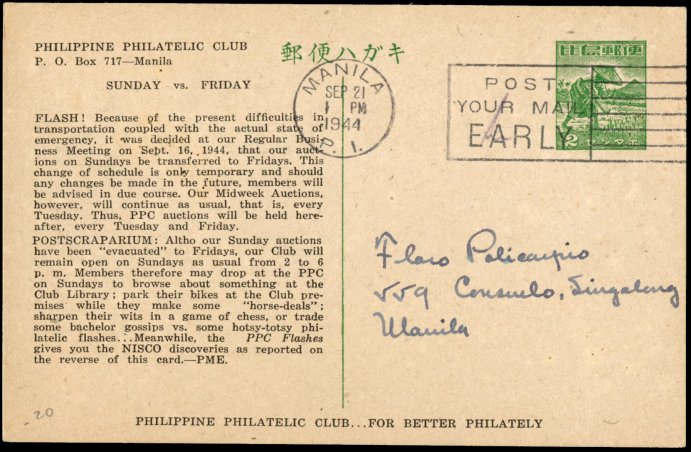 PHILIPPINE PHILATELIC CLUB
P. O. Box 717—Manila
SUNDAY vs. FRIDAY
FLASH! Because of the present difficulties in
transportation coupled with the actual state of
emergency, it was decided at our Regular Busi-
ness Meeting on Sept. 16, 1944, that our auct-
ions on Sundays be transferred to Fridays. This
change of schedule is only temporary and should
any changes be made in the future, members will
be advised in due course. Our Midweek Auctions,
however, will continue as usual, that is, every
Tuesday. Thus, PPC auctions will be held here-
after, every Tuesday and Friday.
POSTSCRAPARIUM: Altho our Sunday auctions
have been "evacuated" to Fridays, our Club will
remain open on Sundays as usual from 2 to 6
p. m. Members therefore may drop at the PPC
on Sundays to browse about something at the
Club Library; park their bikes at the Club pre-
mises while they make some "horse-deals";
sharpen their wits in a game of chess, or trade
some bachelor gossips vs. some hotsy-totsy phi-
latelic flashes...Meanwhile, the PPC Flashes
gives you the NISCO discoveries as reported on
the reverse of this card.—PME.
20
郵便ハガキ
MANILA
SEP 21
1 PM
1944
P. I.
POST
YOUR MAIL
EARLY
比島郵便
2 センタボ
Floro Policarpio
559 Consuelo, Singalong
Manila
PHILIPPINE PHILATELIC CLUB...FOR BETTER PHILATELY